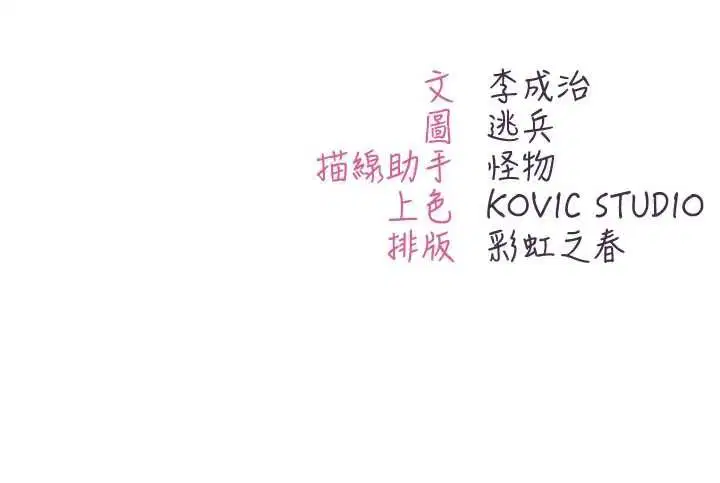 文 李成治
圖 逃兵
描線助手 怪物
上色 KOVIC STUDIO
排版 彩虹之春